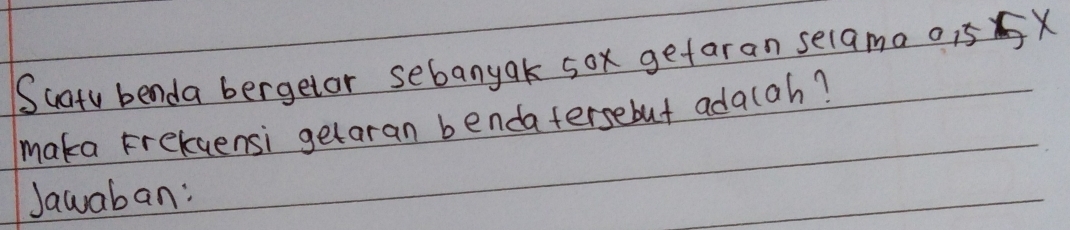 Suatu benda bergetar sebanyak 50x getaran selama 0,5 x
maka Frekuensi getaran benda tersebut adalah?
Jawaban: